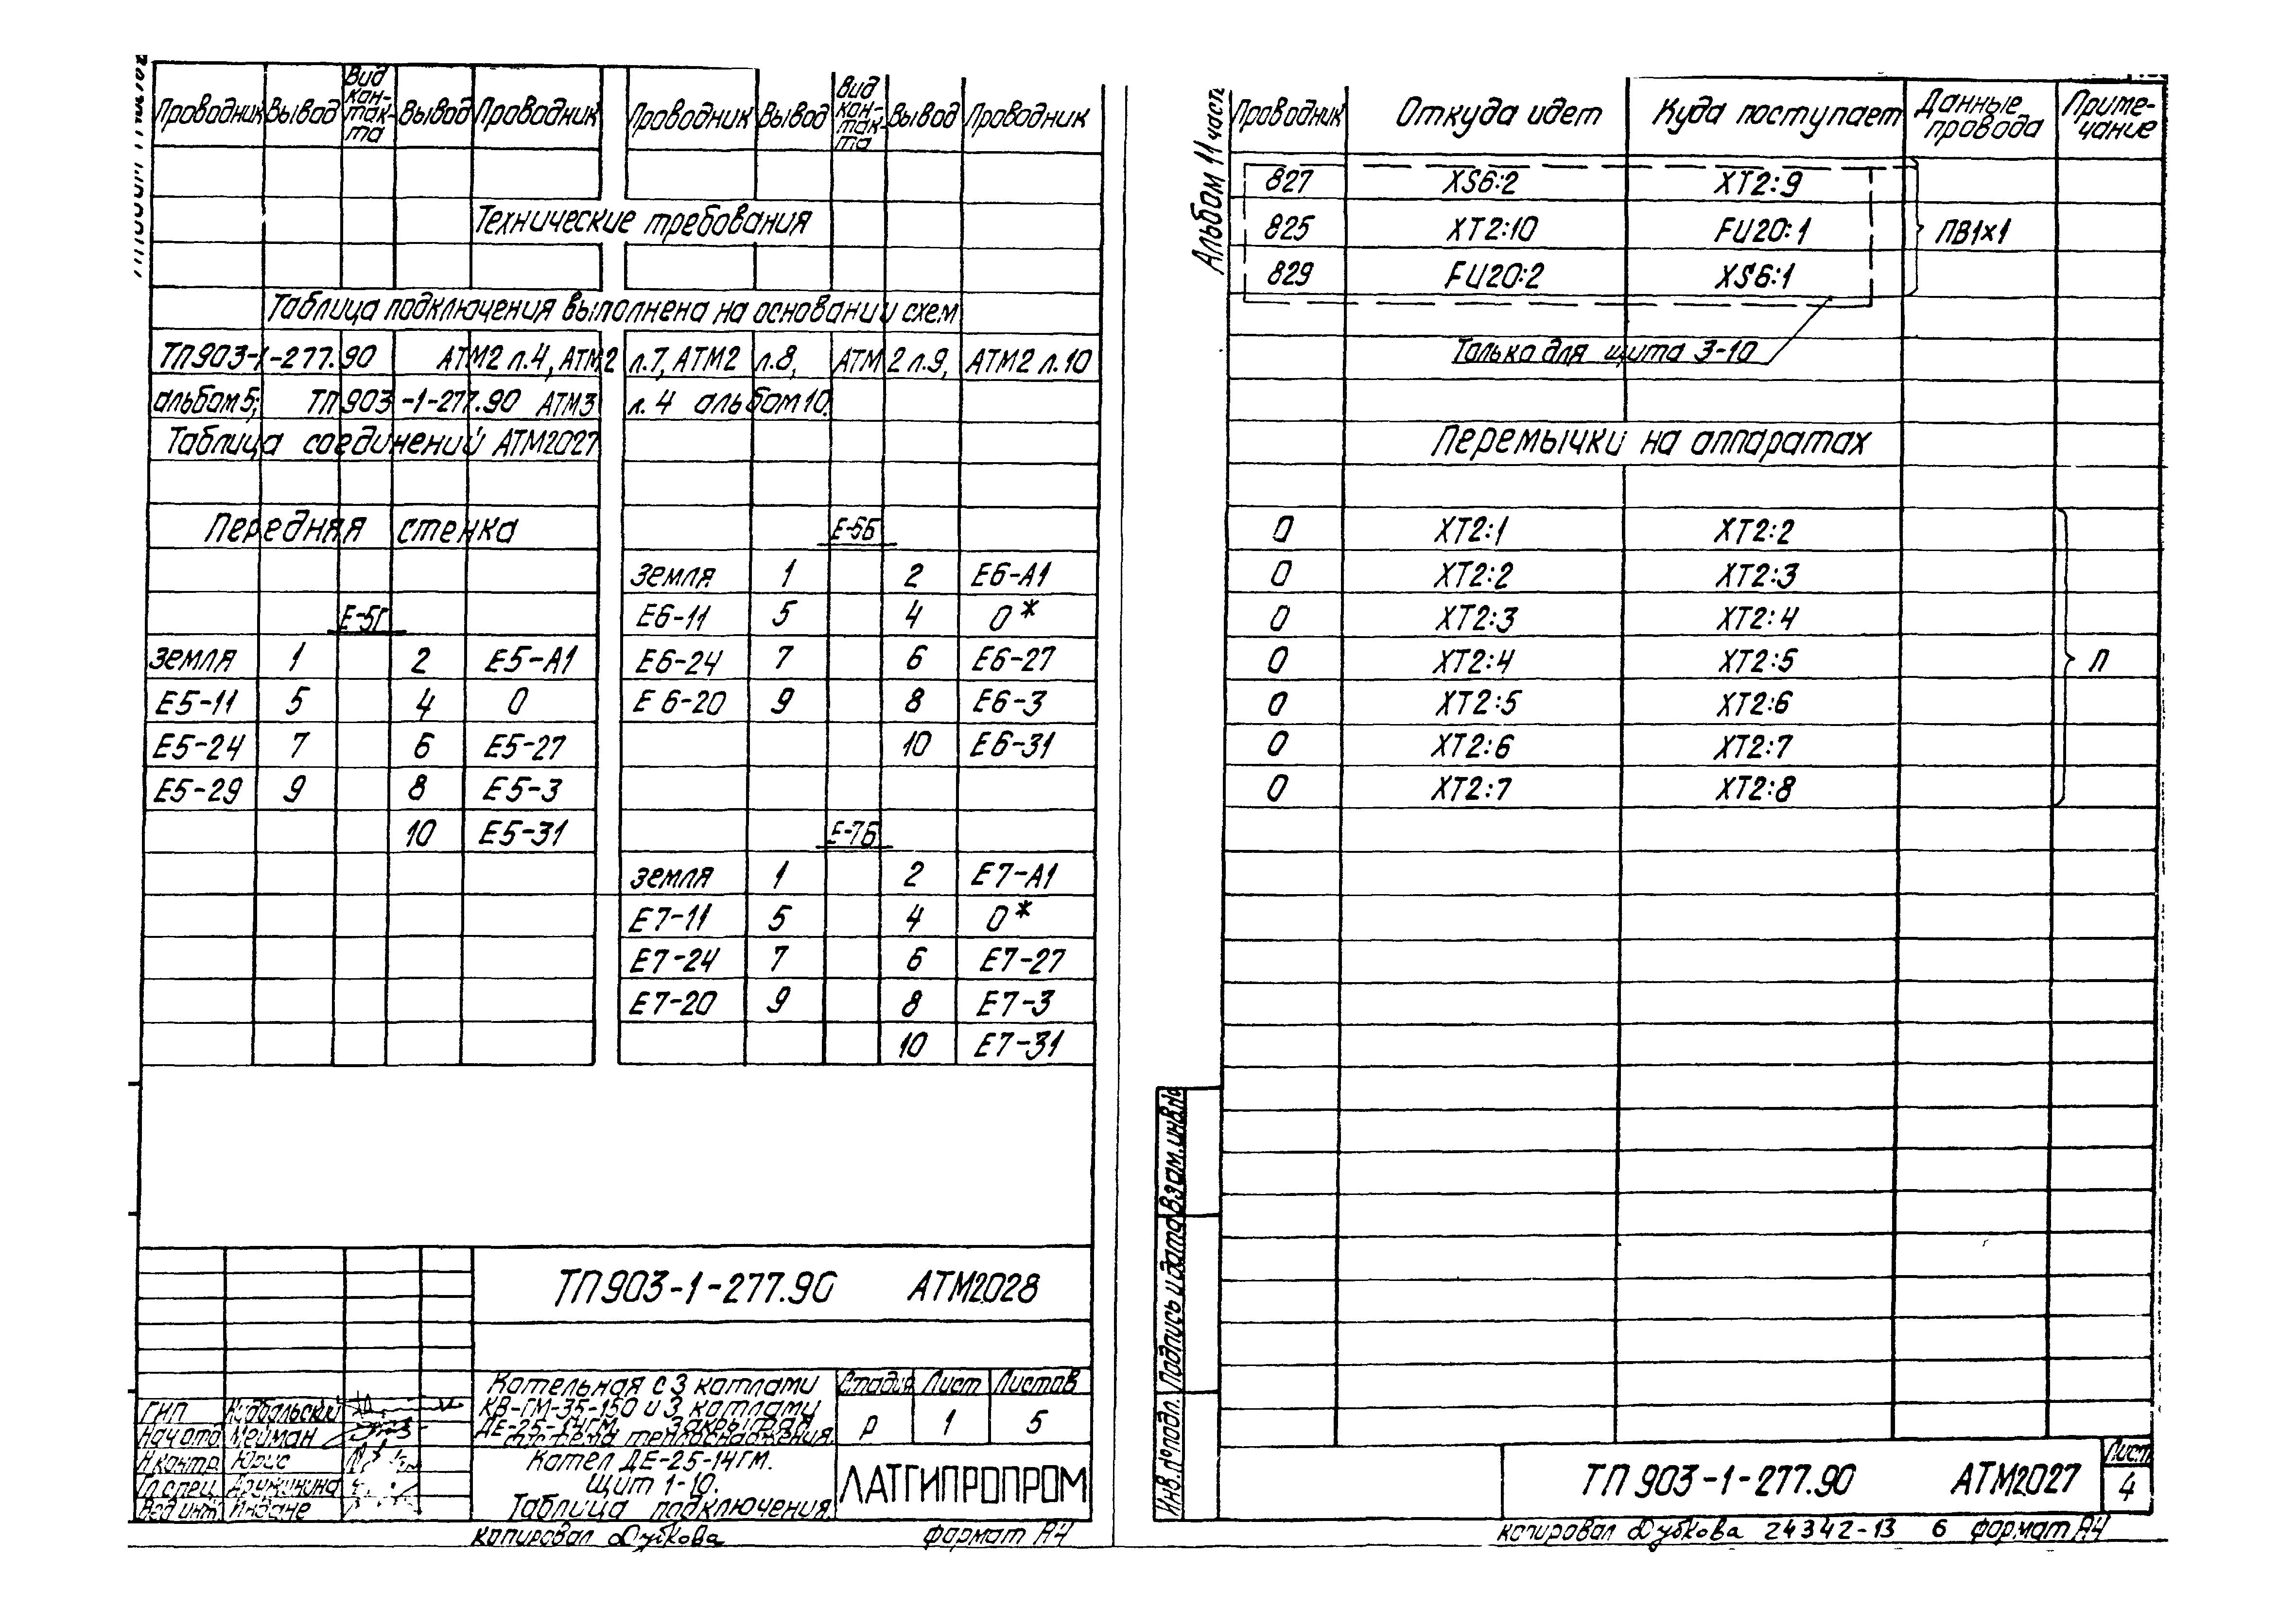 Проводник Вывод Вид контакта Вывод Проводник Проводник Вывод Вид контакта Вывод Проводник
Технические требования
Таблица подключения выполнена на основании схем
ТП903-1-277.90 АТМ2 л.4, АТМ2 л.7, АТМ2 л.8, АТМ2 л.9, АТМ2 л.10
альбом 5; ТП903-1-277.90 АТМ3 л.4 альбом 10.
Таблица соединений АТМ2027
Передняя стенка
Е-5Г
земля 1 2 Е5-А1
Е5-11 5 4 0
Е5-24 7 6 Е5-27
Е5-29 9 8 Е5-3
10 Е5-31
Е-6Б
земля 1 2 Е6-А1
Е6-11 5 4 0*
Е6-24 7 6 Е6-27
Е6-20 9 8 Е6-3
10 Е6-31
Е-7Б
земля 1 2 Е7-А1
Е7-11 5 4 0*
Е7-24 7 6 Е7-27
Е7-20 9 8 Е7-3
10 Е7-31
ТП903-1-277.90 АТМ2028
Котельная с 3 котлами
КВ-ГМ-35-150 и 3 котлами
ДЕ-25-14ГМ. Закрытая
система теплоснабжения.
Стадия Лист Листов
Р 1 5
ГИП
Нач отд Мейман
Н контр. Юрис
Гл. спец. Дружинина
Вед инж
Котел ДЕ-25-14ГМ.
Щит 1-10.
Таблица подключения.
ЛАТГИПРОПРОМ
копировал Дубкова формат А4
Альбом 11 часть
Проводник Откуда идет Куда поступает Данные провода Примечание
827 XS6:2 XT2:9
825 XT2:10 FU20:1 ПВ1×1
829 FU20:2 XS6:1
Только для щита 3-10
Перемычки на аппаратах
0 XT2:1 XT2:2
0 XT2:2 XT2:3
0 XT2:3 XT2:4
0 XT2:4 XT2:5 П
0 XT2:5 XT2:6
0 XT2:6 XT2:7
0 XT2:7 XT2:8
Инв. № подл. Подпись и дата Взам. инв. №
ТП 903-1-277.90 АТМ2027
Лист
4
копировал Дубкова 24342-13 6 формат А4